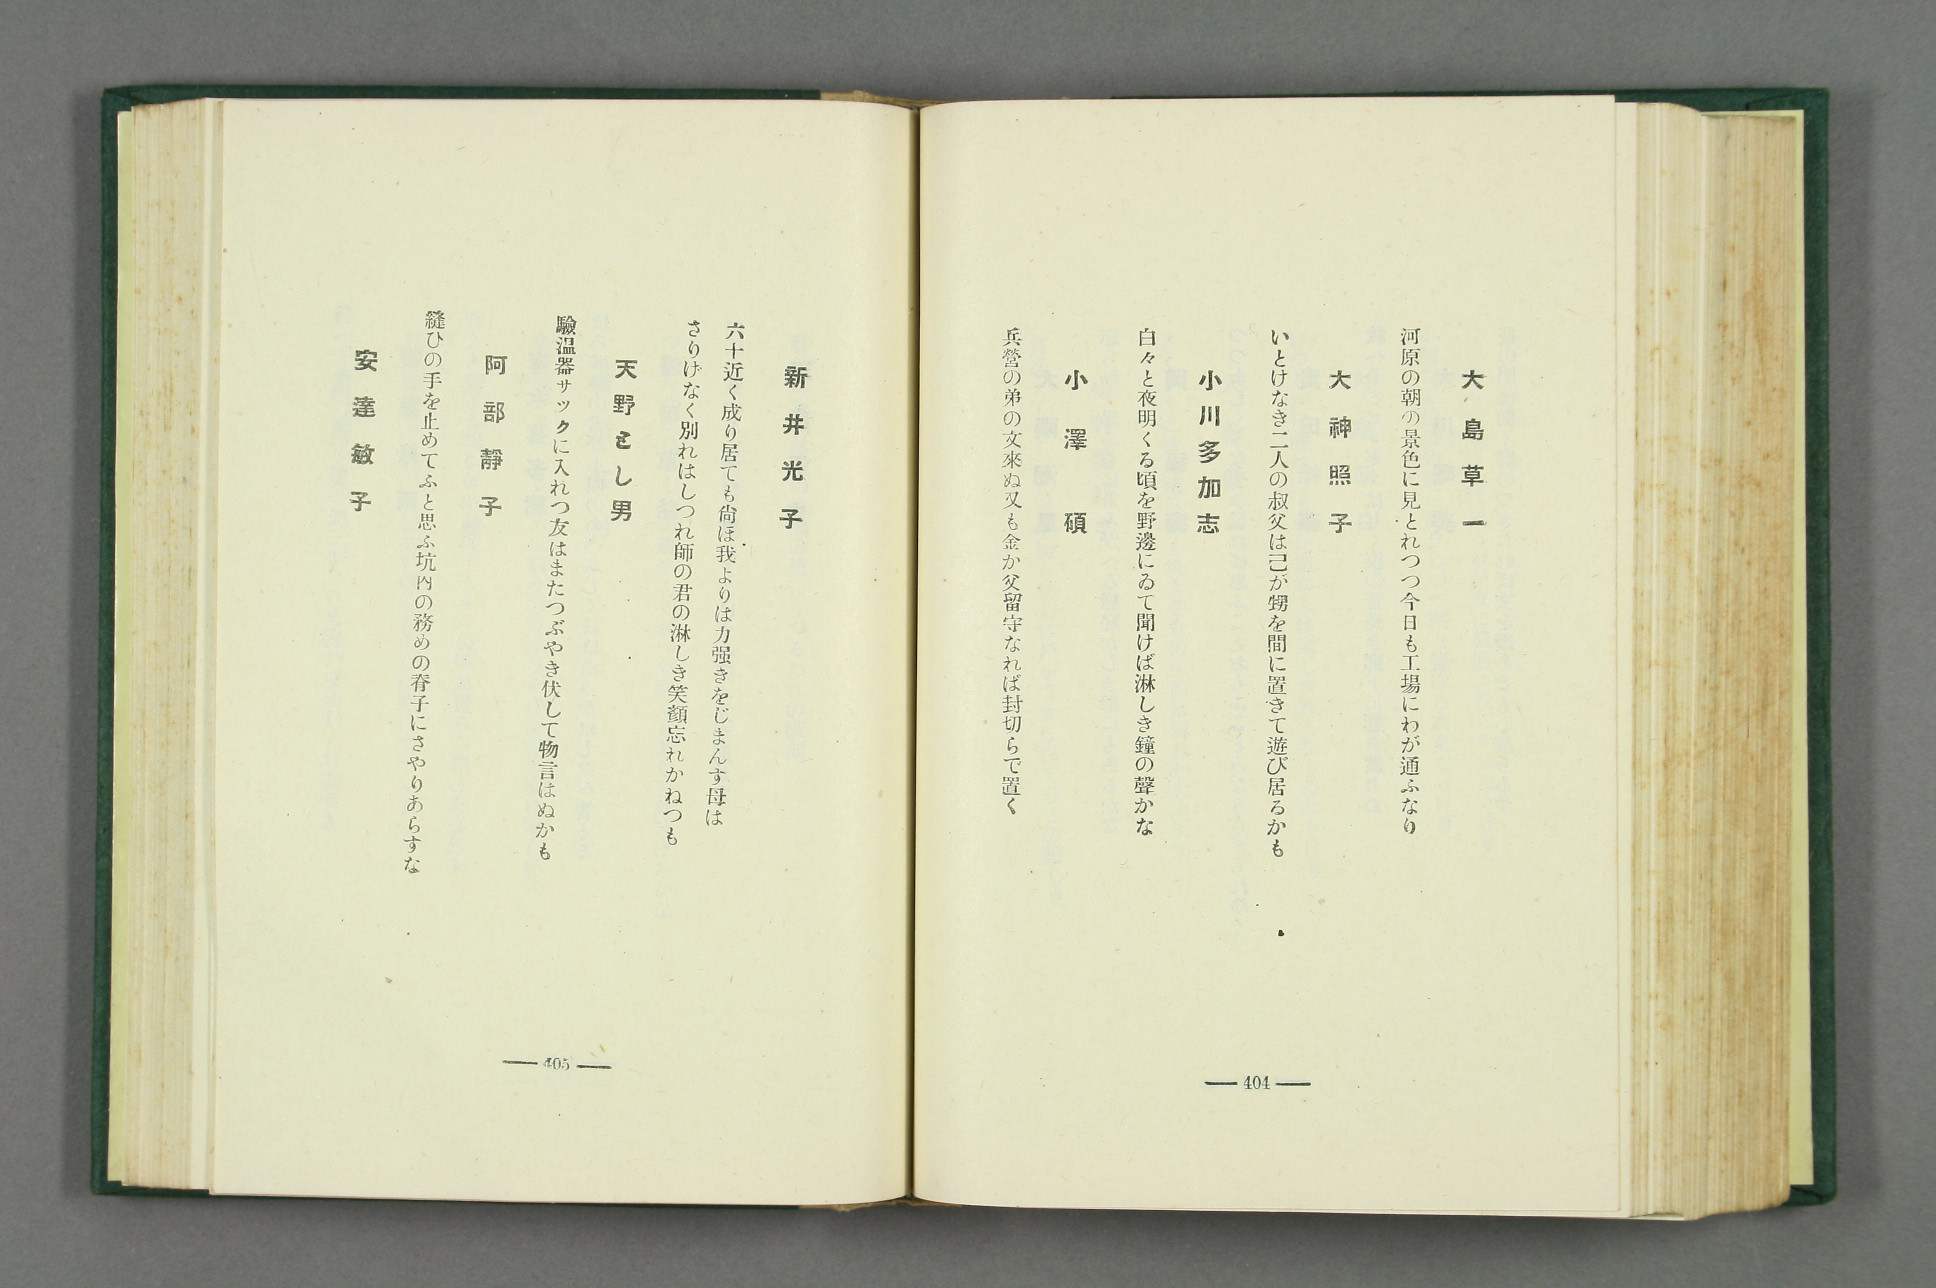 大島草一
河原の朝の景色に見とれつつ今日も工場にわが通ふなり
大神照子
いとけなき二人の叔父は己が甥を間に置きて遊び居るかも
小川多加志
白々と夜明くる頃を野邊にゐて聞けば淋しき鐘の聲かな
小澤碩
兵營の弟の文來ぬ又も金か父留守なれば封切らで置く
— 404 —
新井光子
六十近く成り居ても尙ほ我よりは力强きをじまんす母は
さりげなく別れはしつれ師の君の淋しき笑顏忘れかねつも
天野とし男
驗温器サックに入れつ友はまたつぶやき伏して物言はぬかも
阿部靜子
縫ひの手を止めてふと思ふ坑內の務めの脊子にさやりあらすな
安達敏子
— 405 —